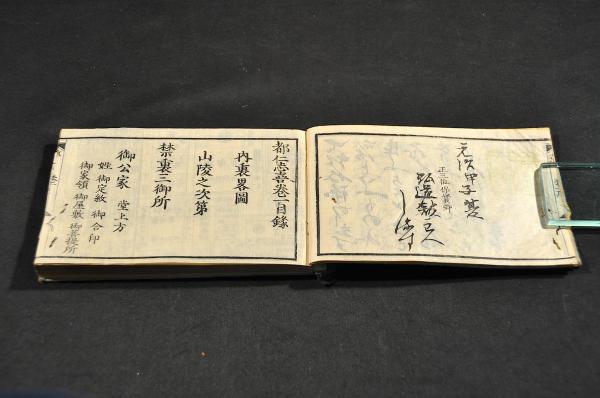 元治甲子夏
正三位保美卿
都仁志喜巻一目録
内裏畧圖
山陵之次第
禁裏三御所
御公家 堂上方
姓 御定紋 御合印
御家領 御屋敷 御菩提所